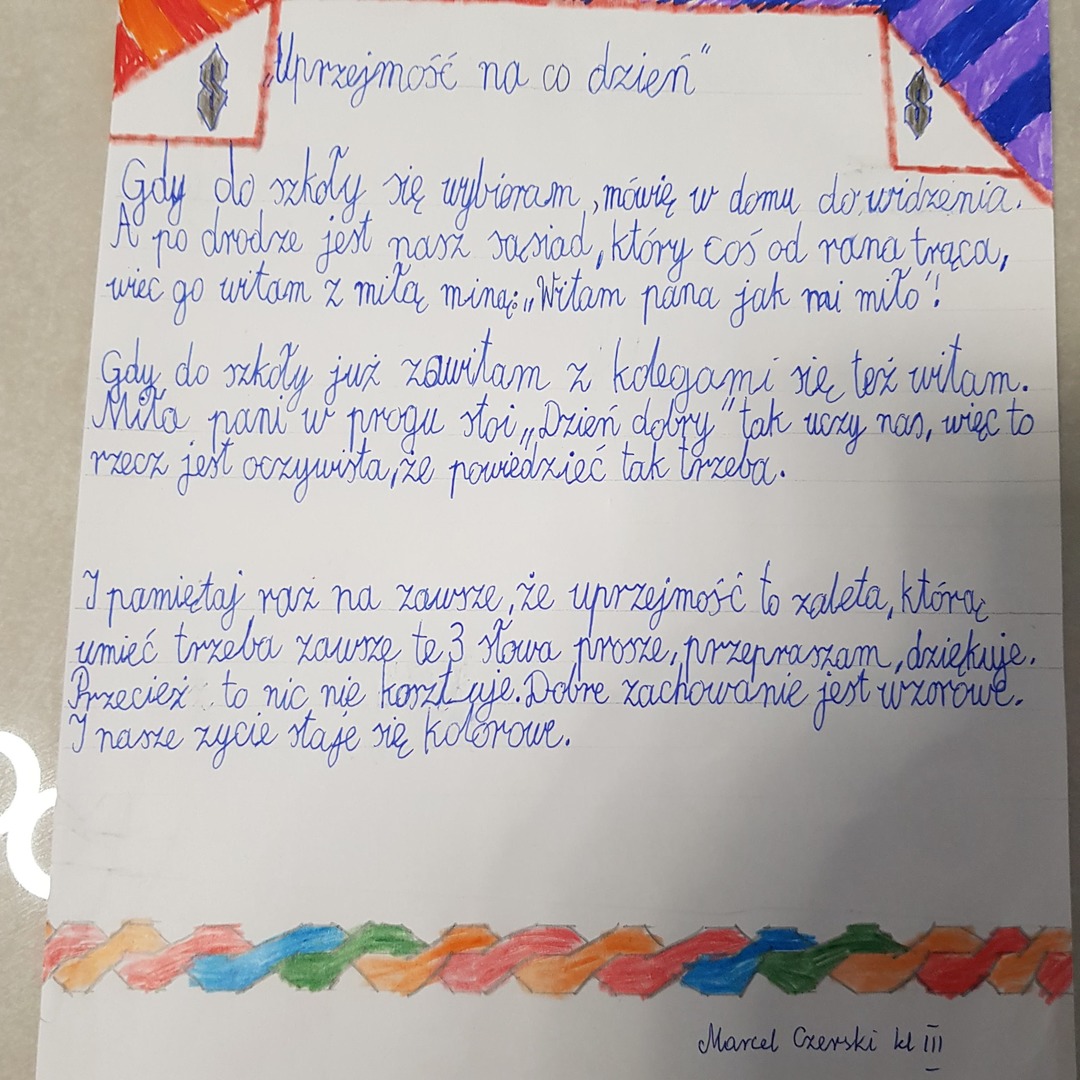 „Uprzejmość na co dzień"
Gdy do szkoły się wybieram, mówię w domu do widzenia.
A po drodze jest nasz sąsiad, który coś od rana trąca,
więc go witam z miłą miną: „Witam pana jak mi miło"!
Gdy do szkoły już zawitam z kolegami się też witam.
Miła pani w progu stoi „Dzień dobry" tak uczy nas, więc to
rzecz jest oczywista, że powiedzieć tak trzeba.
I pamiętaj raz na zawsze, że uprzejmość to zaleta, którą
umieć trzeba zawsze te 3 słowa prosze, przepraszam, dziękuje.
Przecież to nic nie kosztuje. Dobre zachowanie jest wzorowe.
I nasze zycie staje się kolorowe.
Marcel Czerski kl III